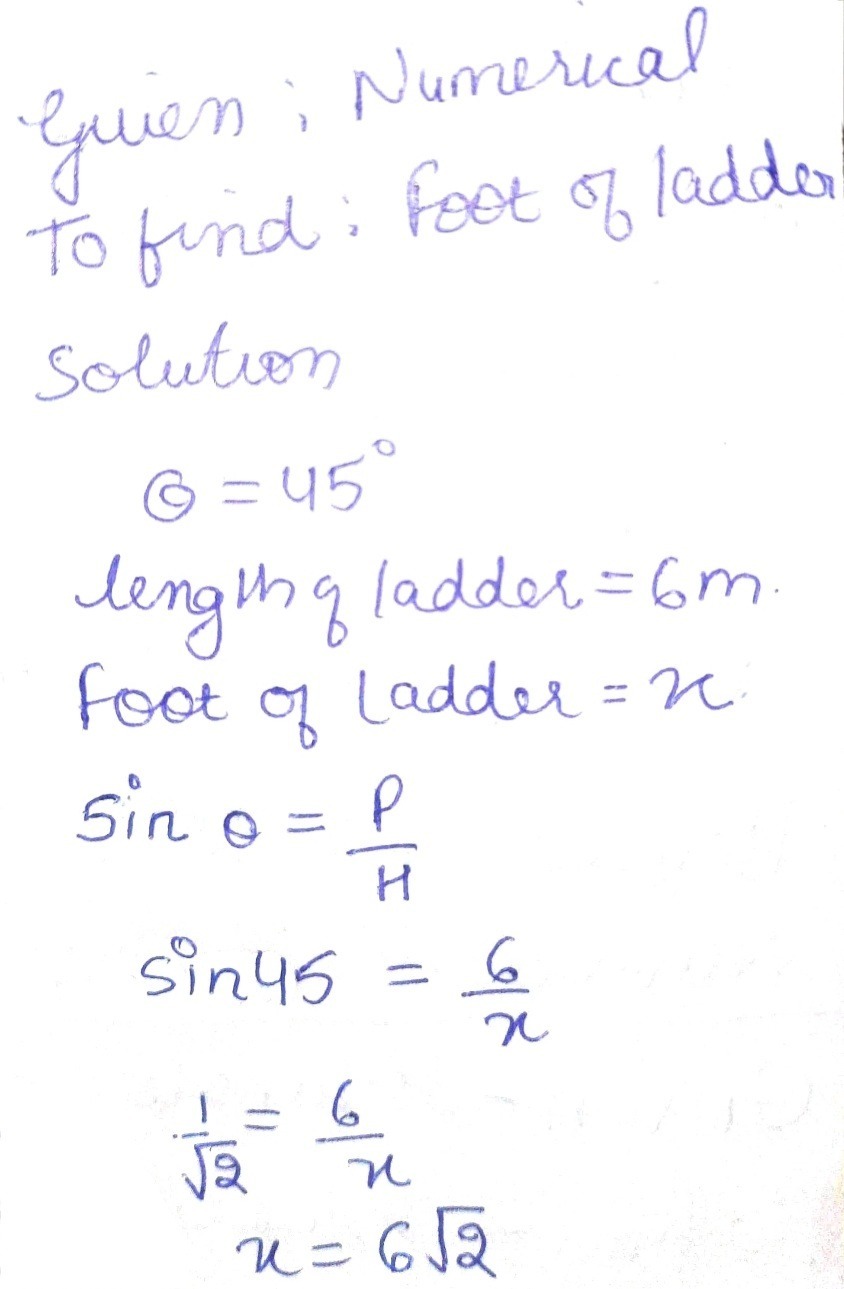 Given : Numerical
To find : foot of ladder
Solution
θ = 45°
length of ladder = 6m.
foot of ladder = x.
Sin θ = P/H
Sin45 = 6/x
1/√2 = 6/x
x = 6√2